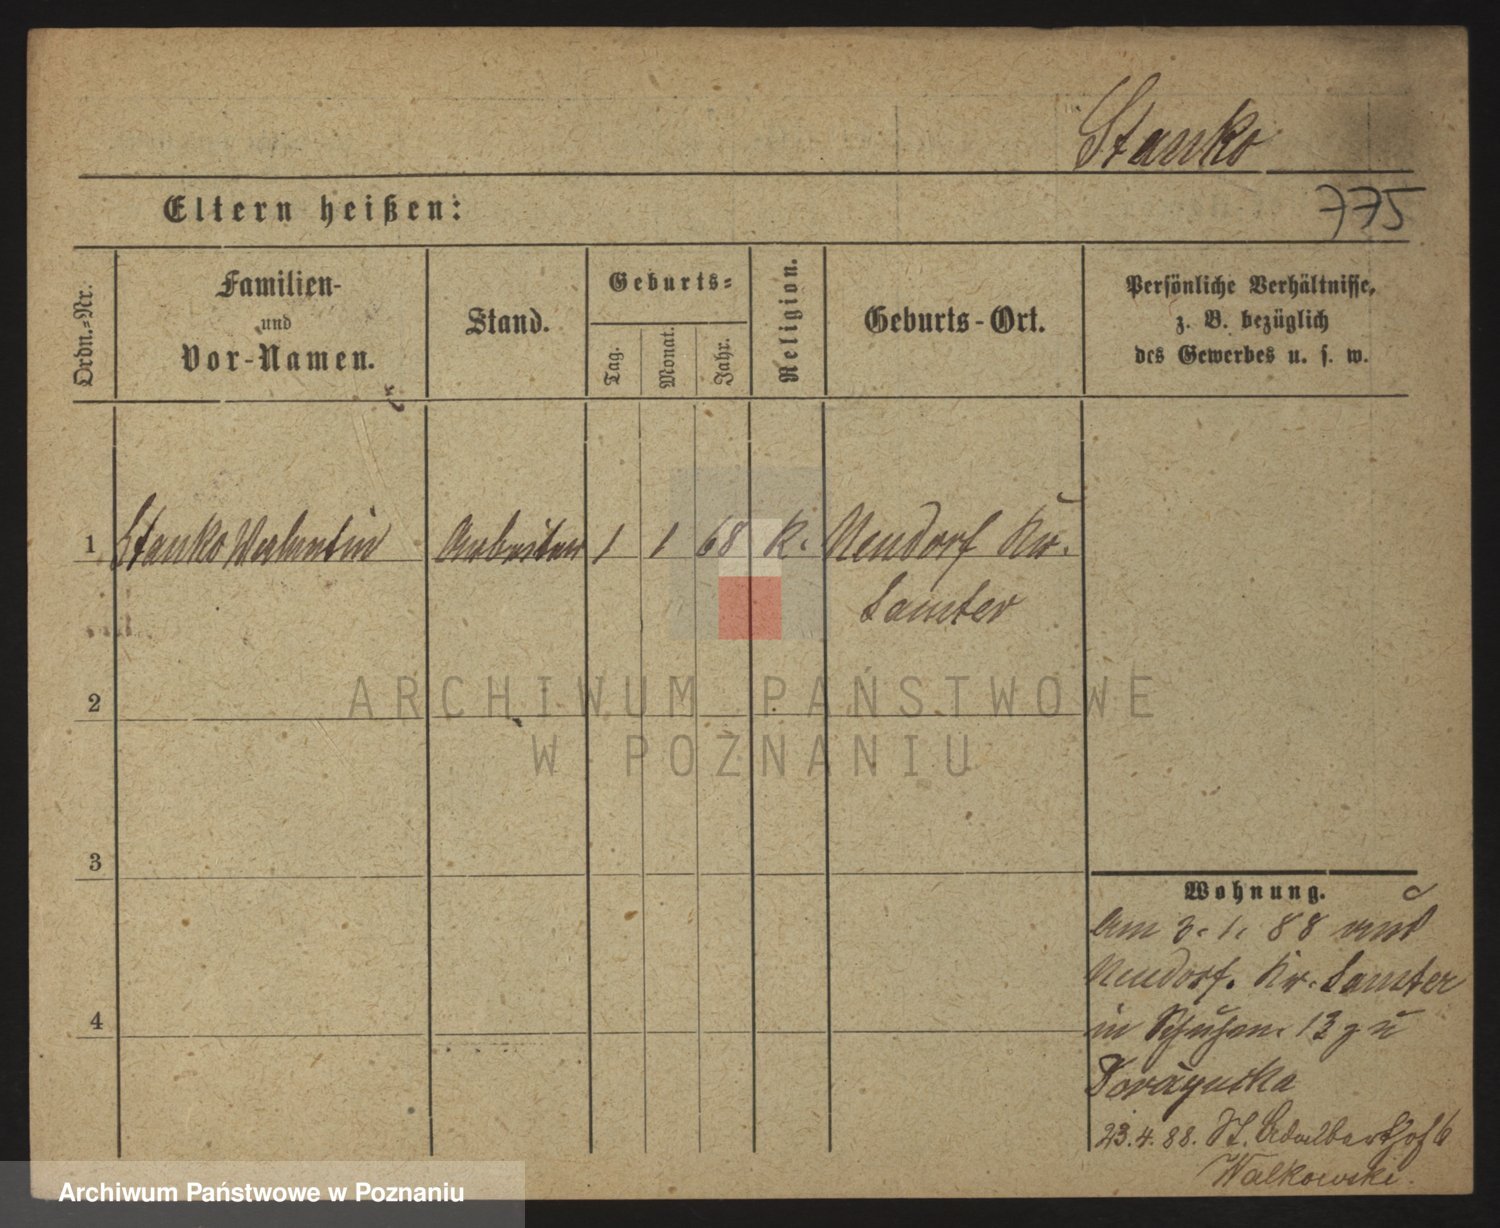 Stanko
775
Eltern heißen:
Ordn.=Nr.
Familien-
und
Vor-Namen.
Stand.
Geburts=
Tag.
Monat.
Jahr.
Religion.
Geburts-Ort.
Persönliche Verhältnisse,
z. B. bezüglich
des Gewerbes u. s. w.
1 Stanko Valentin Arbeiter 1 1 68 K. Neudorf Kr.
Samter
2
3
4
Wohnung.
Am 3. 1. 88 aus
Neudorf. Kr. Samter
in 13 zu
23.4.88. St. Adalberthof 6
Walkowski.
ARCHIWUM PAŃSTWOWE
W POZNANIU
Archiwum Państwowe w Poznaniu